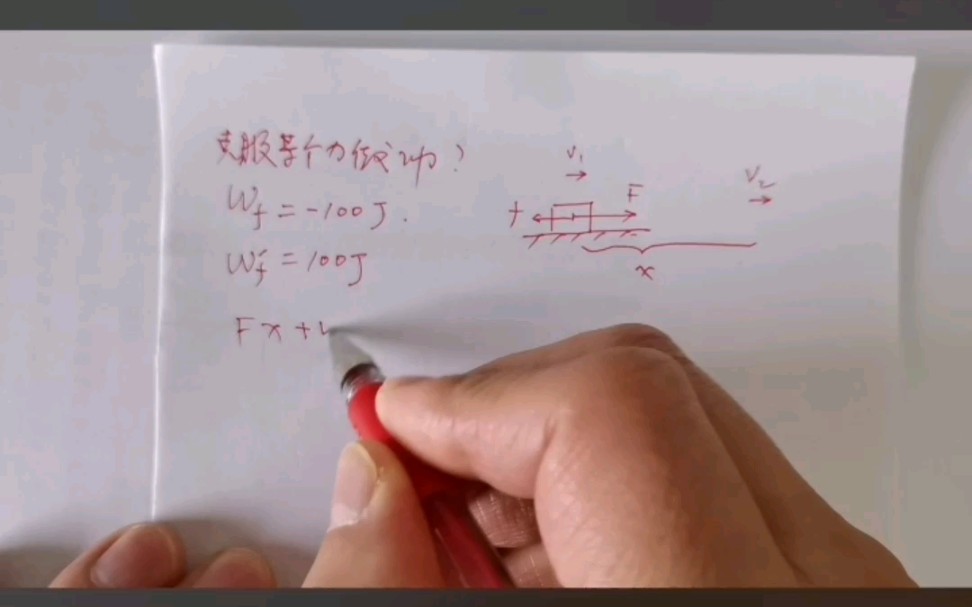 克服某个力做功?
Wf = -100J.
Wf' = 100J
Fx +
v₁
F
f
x
v₂